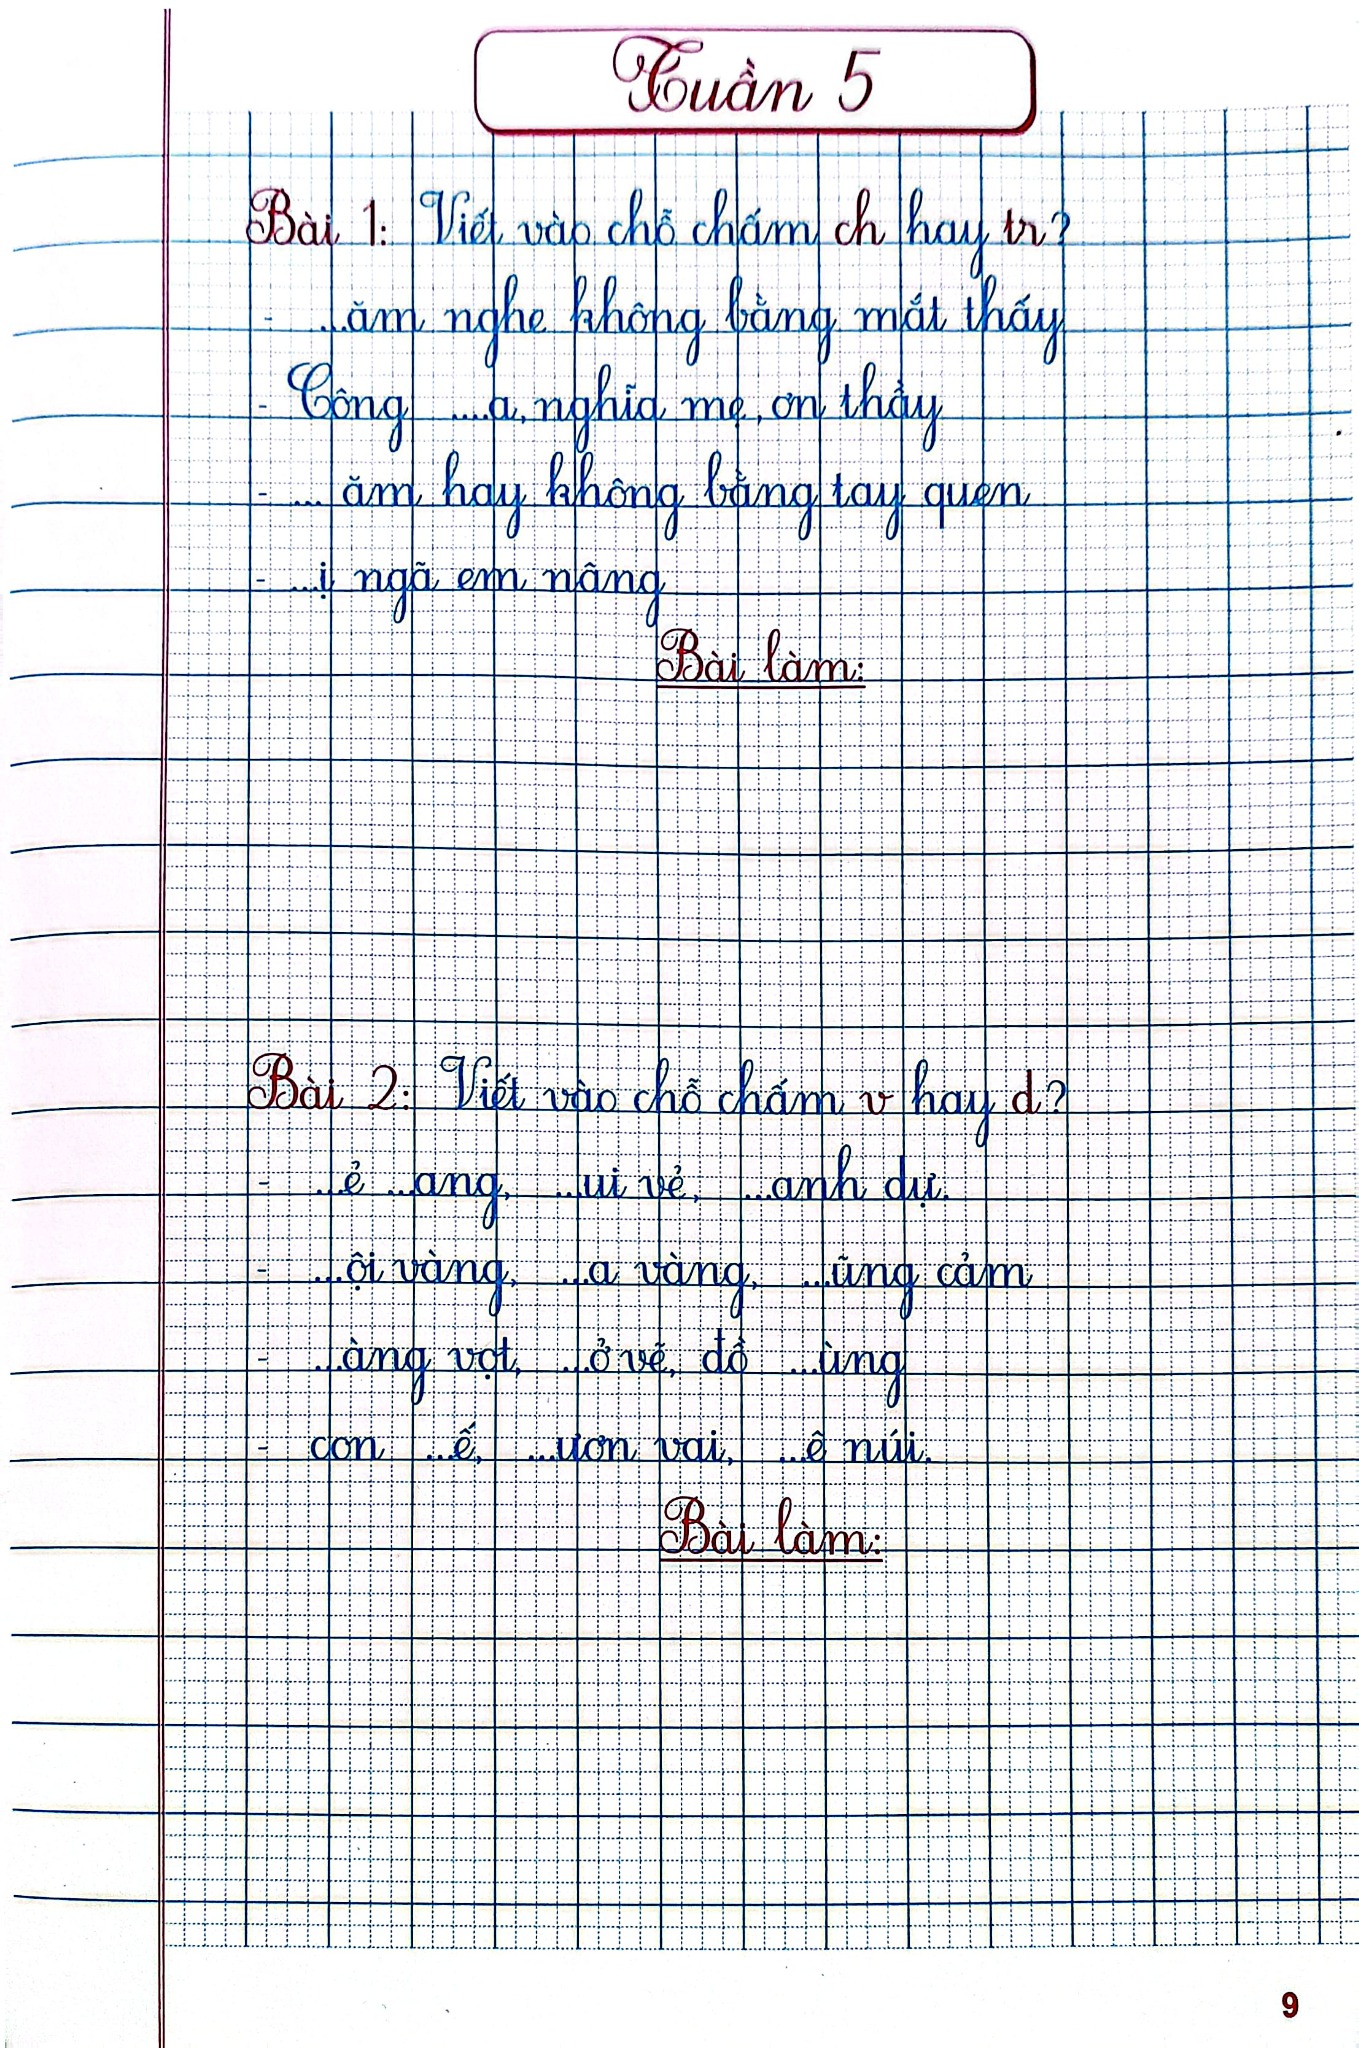 Tuần 5
Bài 1: Viết vào chỗ chấm ch hay tr?
- ...ăm nghe không bằng mắt thấy
- Công ....a, nghĩa mẹ, ơn thầy
- ... ăm hay không bằng tay quen
- ...ị ngã em nâng
Bài làm:
Bài 2: Viết vào chỗ chấm v hay d?
- ...ẻ ...ang, ...ui vẻ, ...anh dự.
- ...ội vàng, ...a vàng, ...ũng cảm
- ...àng vọt, ...ở vẽ, đồ ...ùng
- con ...ế, ...ươn vai, ...ê núi.
Bài làm:
9